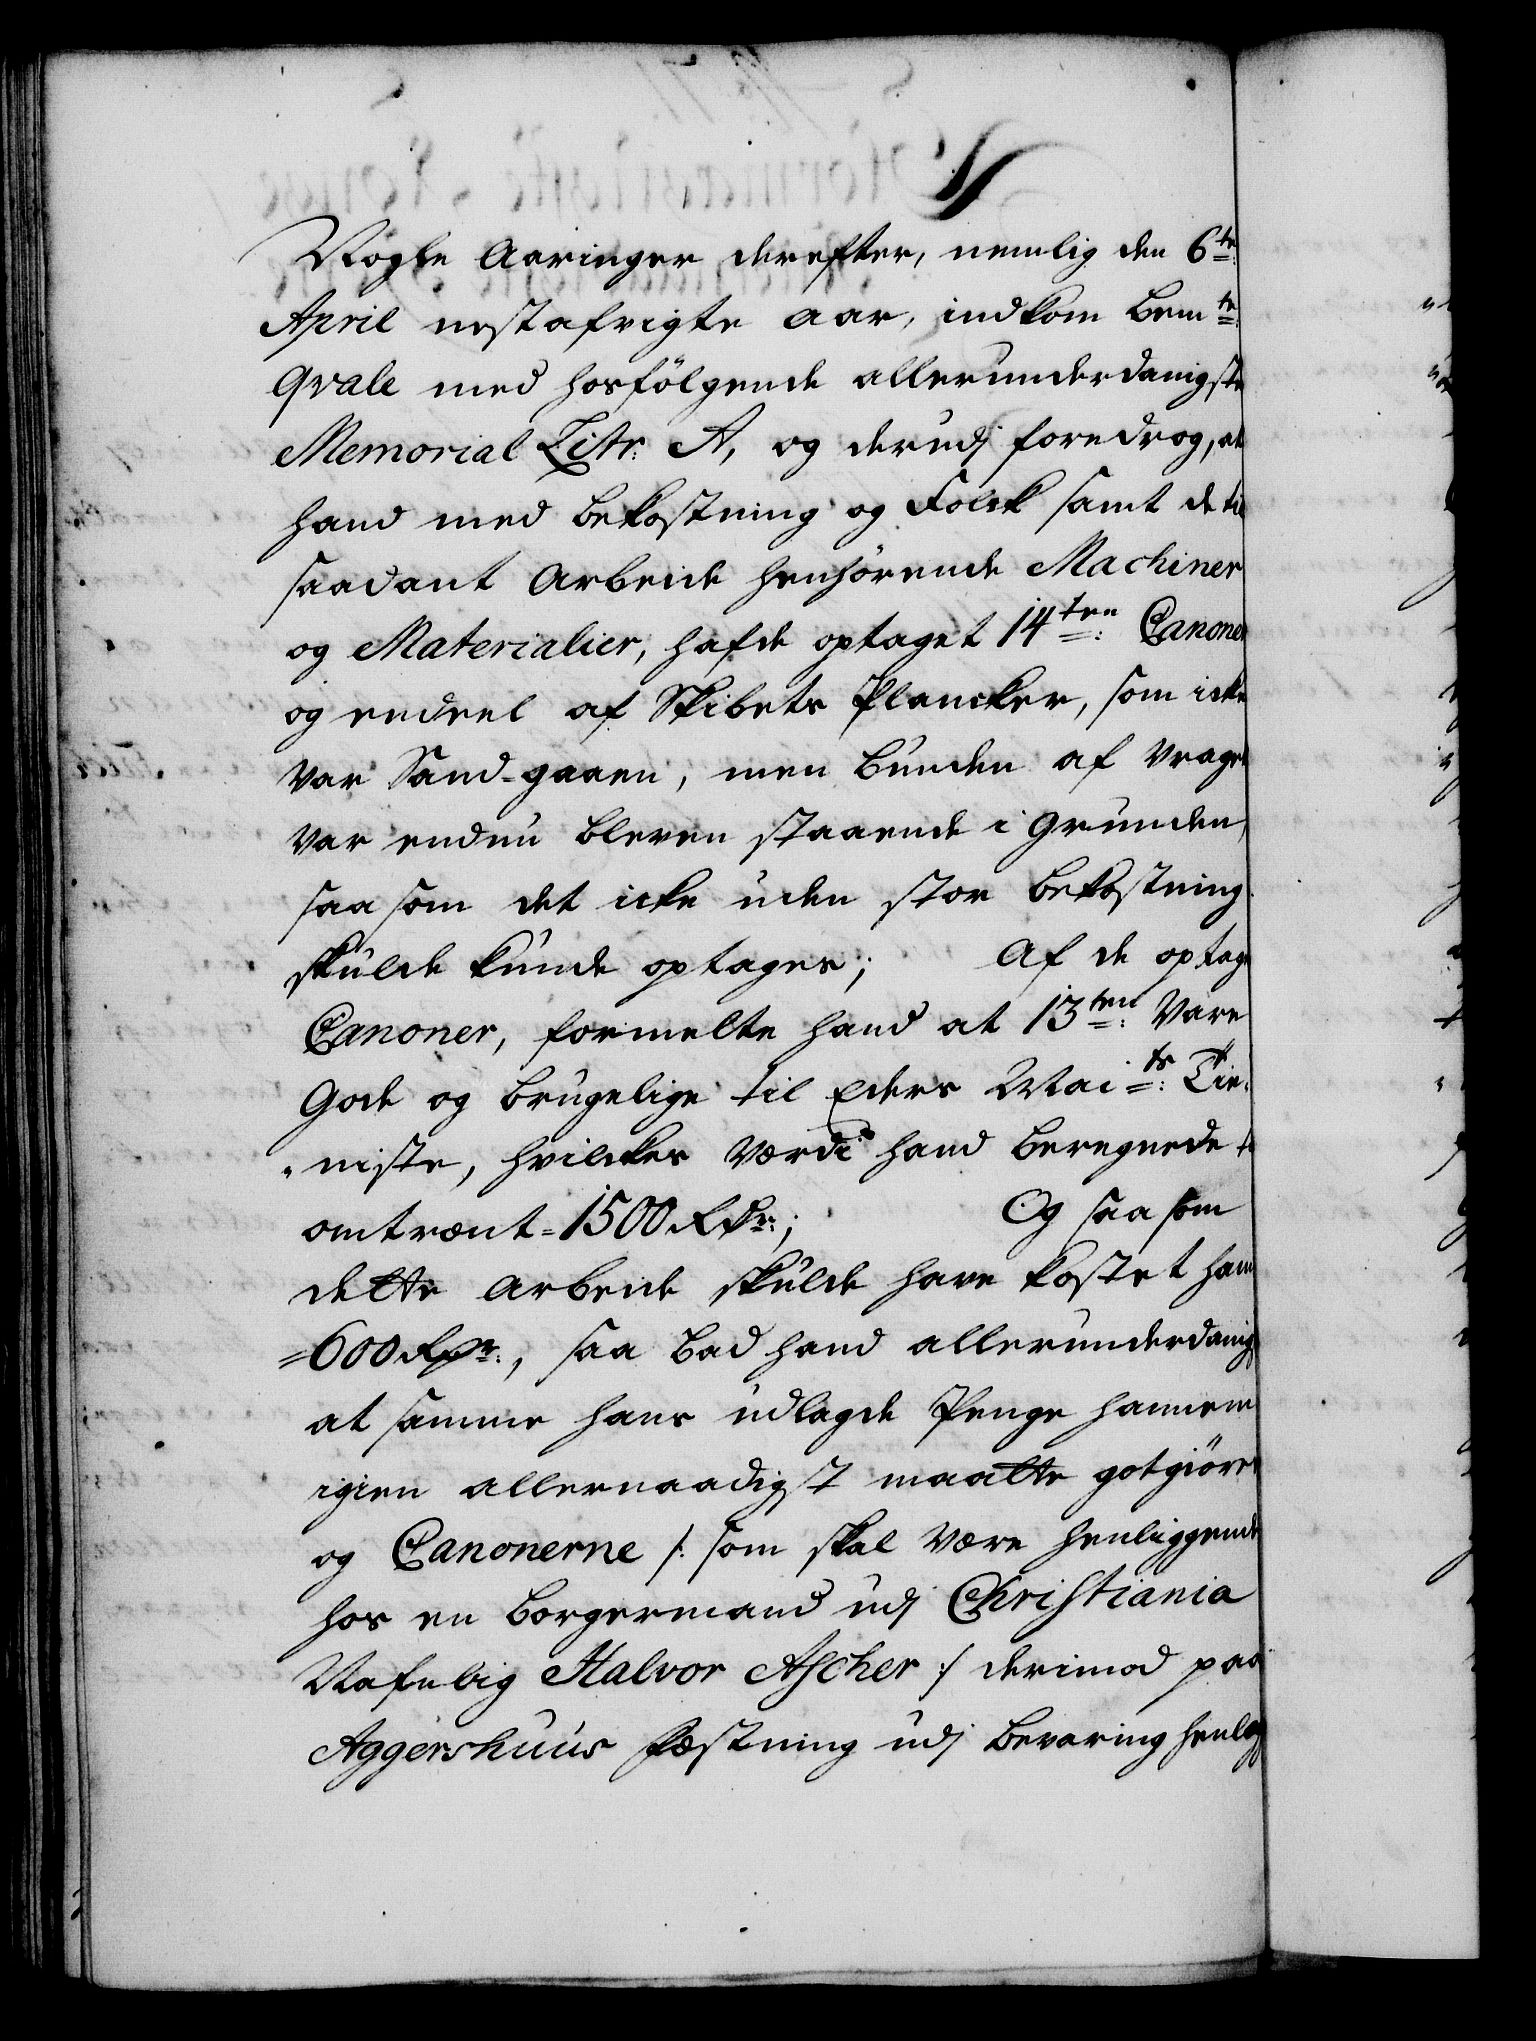 Nogle Aaringer derefter, nemlig den 6te
April nestafvigte Aar, indkom bemte
Qvale med hosfölgende allerunderdanigste
Memorial Litr: A, og derudj foredrog, at
hand med bekostning og Folck samt de til
saadant Arbeide henhörende Machiner
og Materialier, hafde optaget 14ten: Canoner
og endeel af Skibets Plancker, som icke
var Sand-gaaen, men bunden af vraget
var endnu bleven staaende i grunden,
saa som det icke uden stor bekostning
skulde kunde optages; Af de optag
Canoner, formelte hand at 13ten: vare
Gode og brugelige til Eders Maits: Tie-
niste, hvilckes værdi hand beregnede t
omtrent = 1500 Rdr:; Og saa som
dette Arbeide skulde have kostet ham
=600 Rdr:, saa bad hand allerunderdanig
at samme hans udlagde Penge hannem
igien allernaadigst maatte gotgiöres
og Canonerne /: som skal være henliggende
hos en borgermand udj Christiania
Nafnlig Halvor Ascher :/ derimod paa
Aggershuus Fæstning udj bevaring henleg